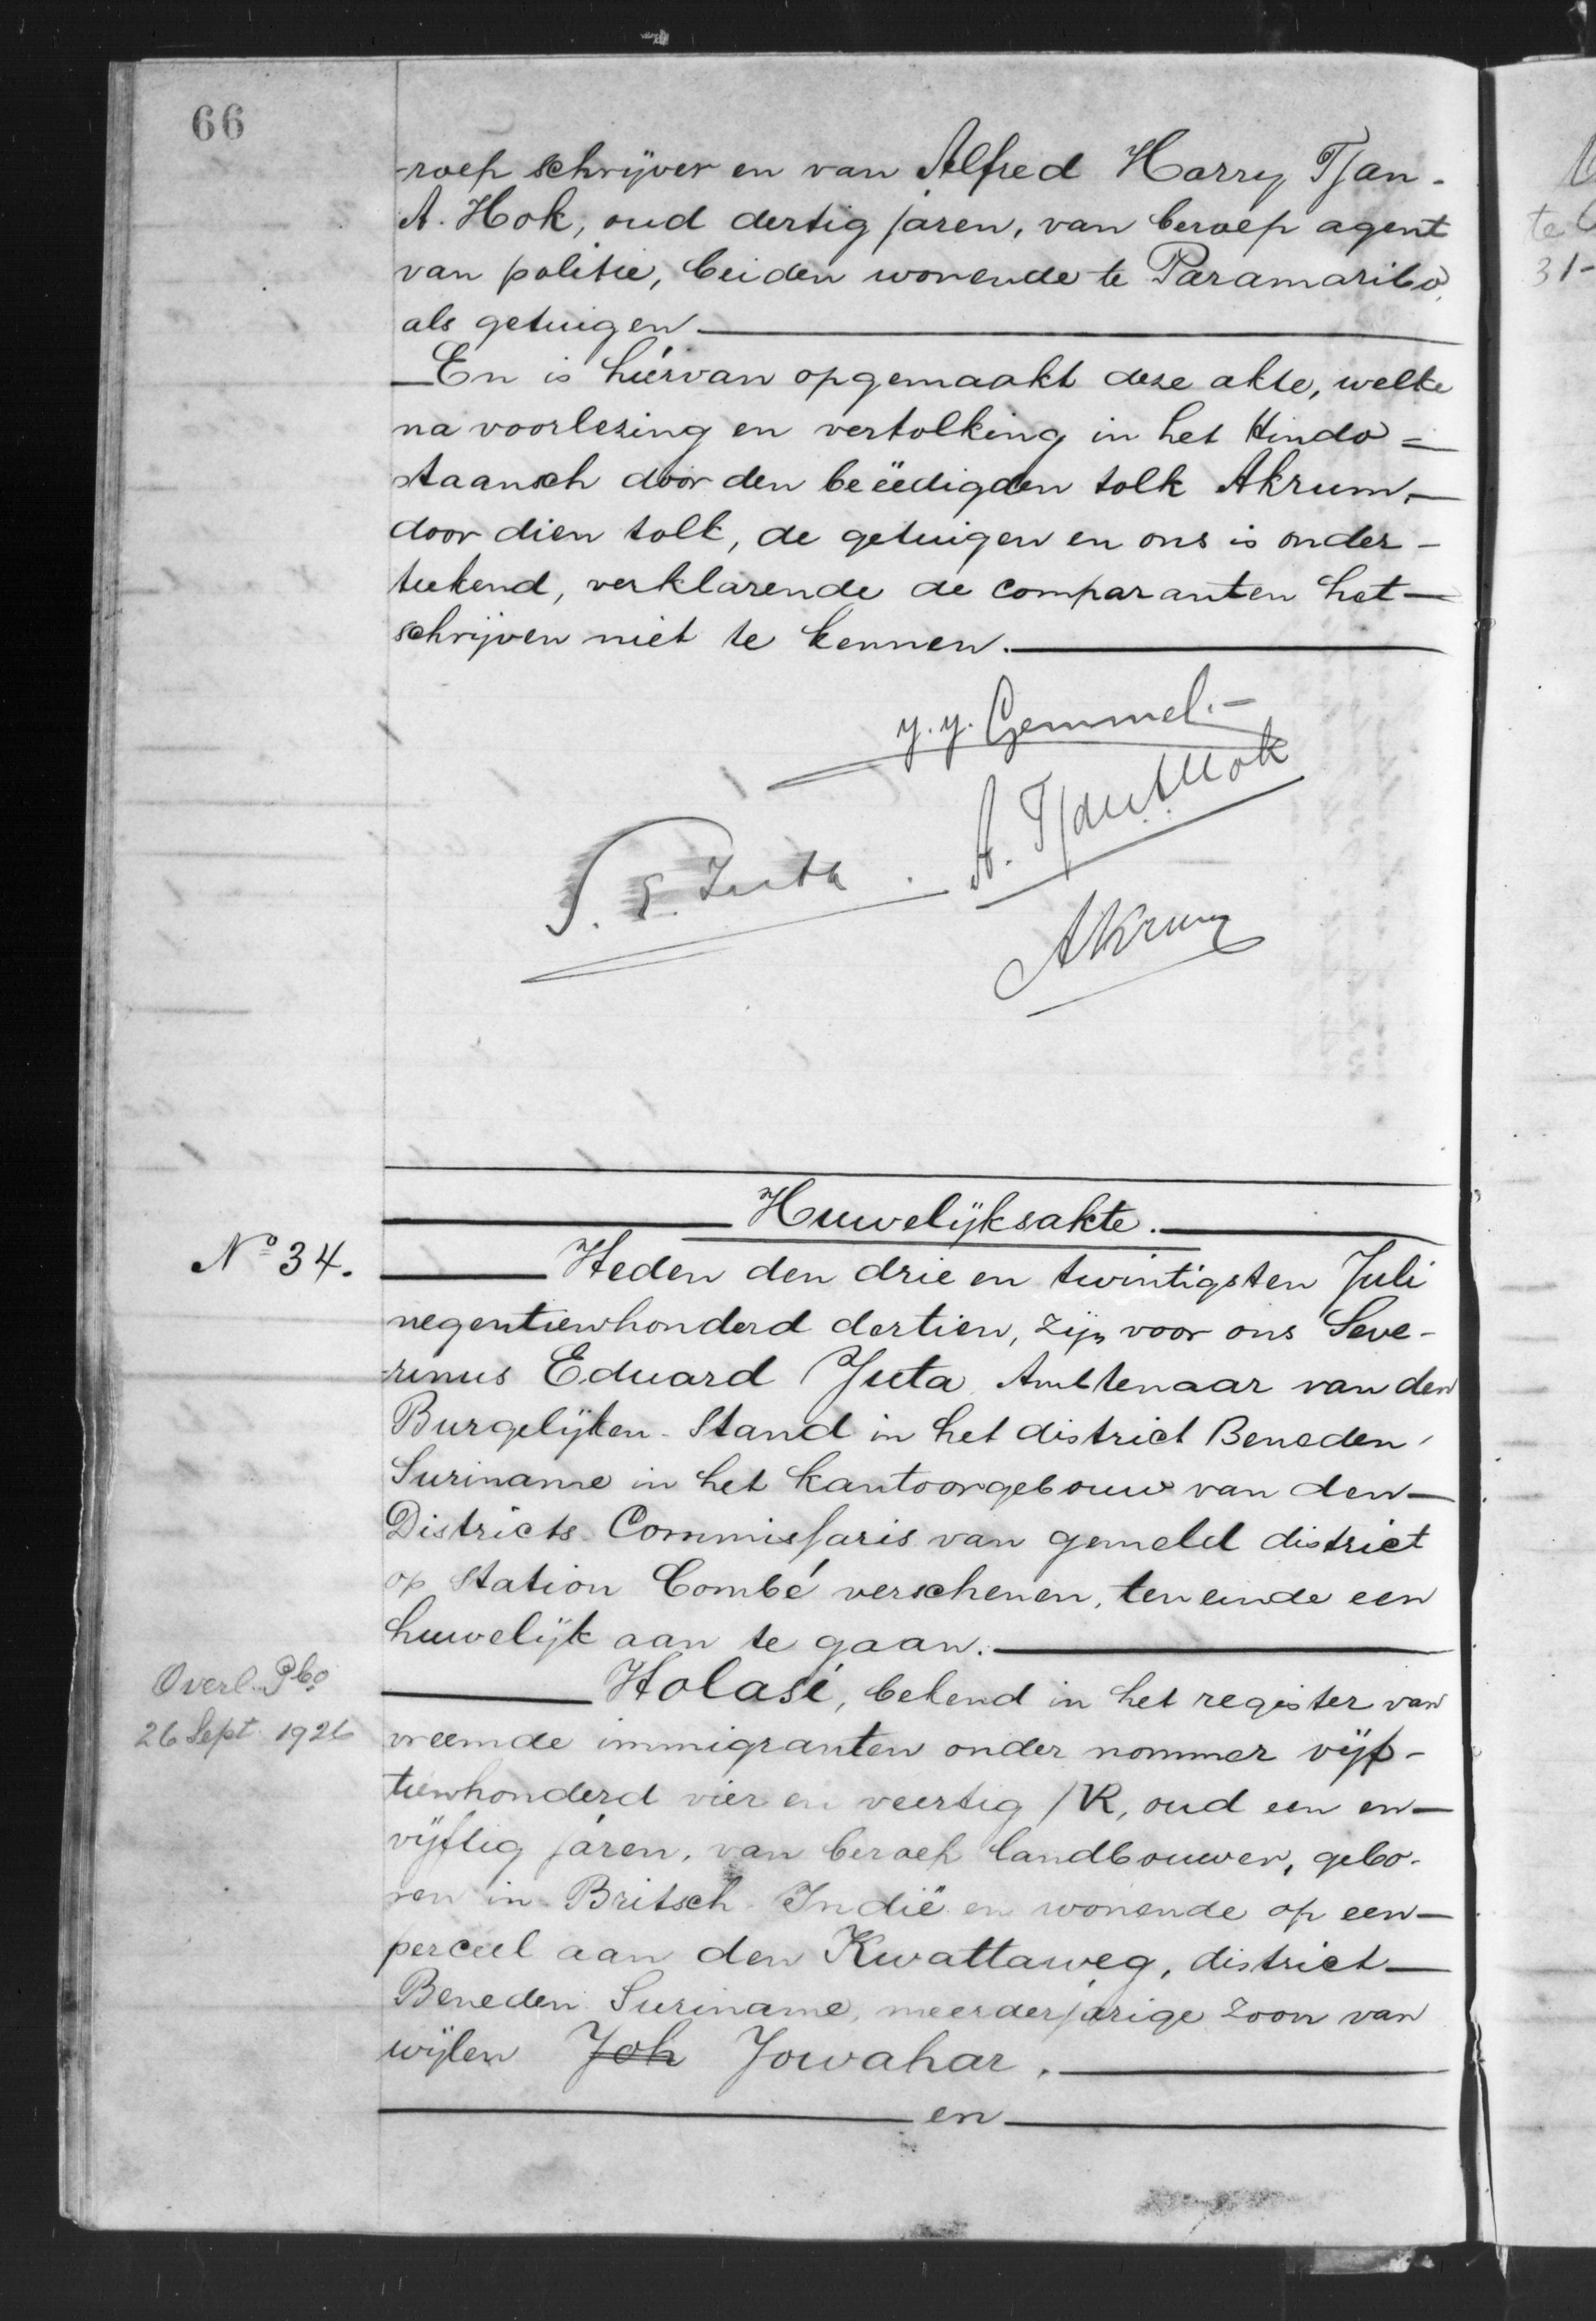 66
roep schrijver en van Alfred Harry Tjan-
A. Hok, oud dertig jaren, van beroep agent
van politie, beiden wonende te Paramaribo
als getuigen
En is hiervan opgemaakt deze akte, welke
na voorlezing en vertolking in het Hindo=
staansch door den beëedigden tolk Akrum,
door dien tolk, de getuigen en ons is onder-
teekend, verklarende de comparanten het
schrijven niet te kennen.
J. J. Gemmel.-
A. Tjan A Hok
S. E. Juta.
Akrum
Huwelijksakte.
No 34.
Heden den drie en twintigsten Juli
negentienhonderd dertien, zijn voor ons Seve-
rinus Eduard Juta Ambtenaar van den
Burgelijken-Stand in het district Beneden-
Suriname in het kantoorgebouw van den
Districts-Commissaris van gemeld district
op station Combé verschenen, ten einde een
huwelijk aan te gaan.
Overl. Pbo
26 Sept. 1926
Holasi, bekend in het register van
vreemde immigranten onder nommer vijf-
tienhonderd vier en veertig /R, oud een en
vijftig jaren, van beroep landbouwer, gebo-
ren in Britsch-Indië en wonende op een
perceel aan den Kwattaweg, district
Beneden Suriname, meerderjarige zoon van
wijlen Joh Jowahar.
en
te
31-